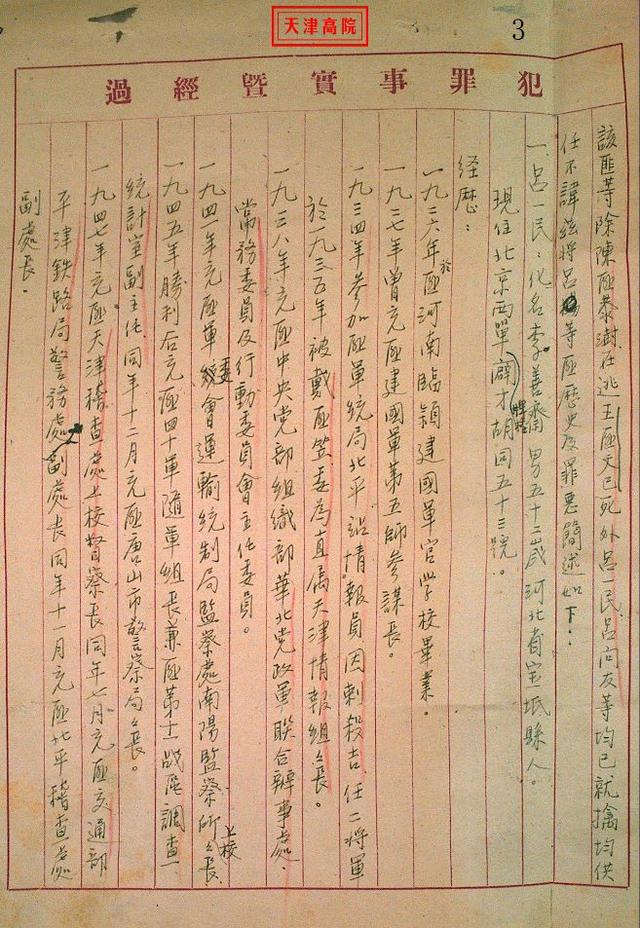 天津高院
3
犯罪事實暨經過
該匪等除陳匪泰澍在逃王匪文已死外呂一民呂向友等均已就擒均供
任不諱茲将呂等匪歷史及罪惡簡述如下:
一、呂一民:化名李善齋男五十二歲河北省宝坻縣人。
現住北京西單辟才胡同五十三號。
経歷:
一九二六年匪於河南臨潁建國軍官学校畢業。
一九二七年曾充匪建國軍第五師參謀長。
一九三四年參加匪軍統局北平站情報員因刺殺吉、任二将軍
於一九三五年被戴匪笠委為直屬天津情報組々長。
一九三八年充匪中央党部組織部華北党政軍联合辦事處、
常務委員及行動委員會主任委員。
一九四一年充匪軍委會運輸統制局監察處南陽監察所上校々長
一九四五年勝利后充匪四十軍随軍組長兼匪第十一战区調查
統計室副主任同年十二月充匪唐山市警察局々長。
一九四七年充匪天津稽查處上校督察長同年七月充匪交通部
平津鉄路局警務處副處長同年十一月充匪北平稽查處
副處長。